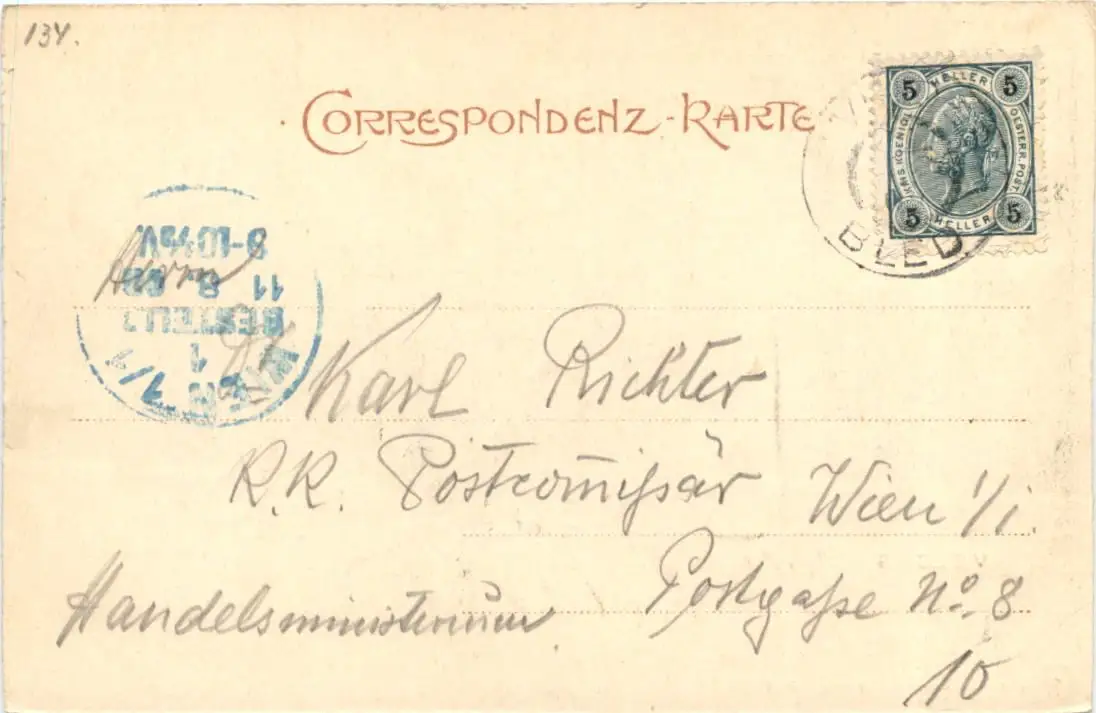 134.
CORRESPONDENZ-KARTE
5 HELLER 5
KAIS. KOENIGL. OESTERR. POST.
5 HELLER 5
BLED
WIEN 1/1
1
BESTELLT
11 8
8-10½V.
Herrn
Karl Richter
K.K. Postcom̅issär Wien 1/1.
Handelsministerium Postgasse No. 8
10